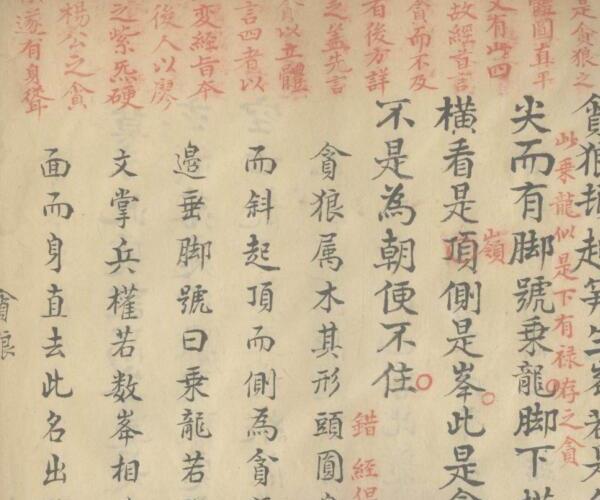 是貪狼之
體圓直平
又有此四
故經首言
貪而不及
者後方詳
之蓋先言
貪以立體
言四者以
變經旨本
後人以廖
之紫炁硬
楊公之貪
遂有身聳
貪狼
起笋生峯若是
此乘龍似是下有禄存之貪
尖而有脚號乘龍脚下橫
嶺
橫看是頂側是峯此是貪
不是為朝便不住
錯經
貪狼属木其形頭圓身
而斜起頂而側為貪
邉垂脚號曰乘龍若
文掌兵權若数峯相
面而身直去此名出
貪狼